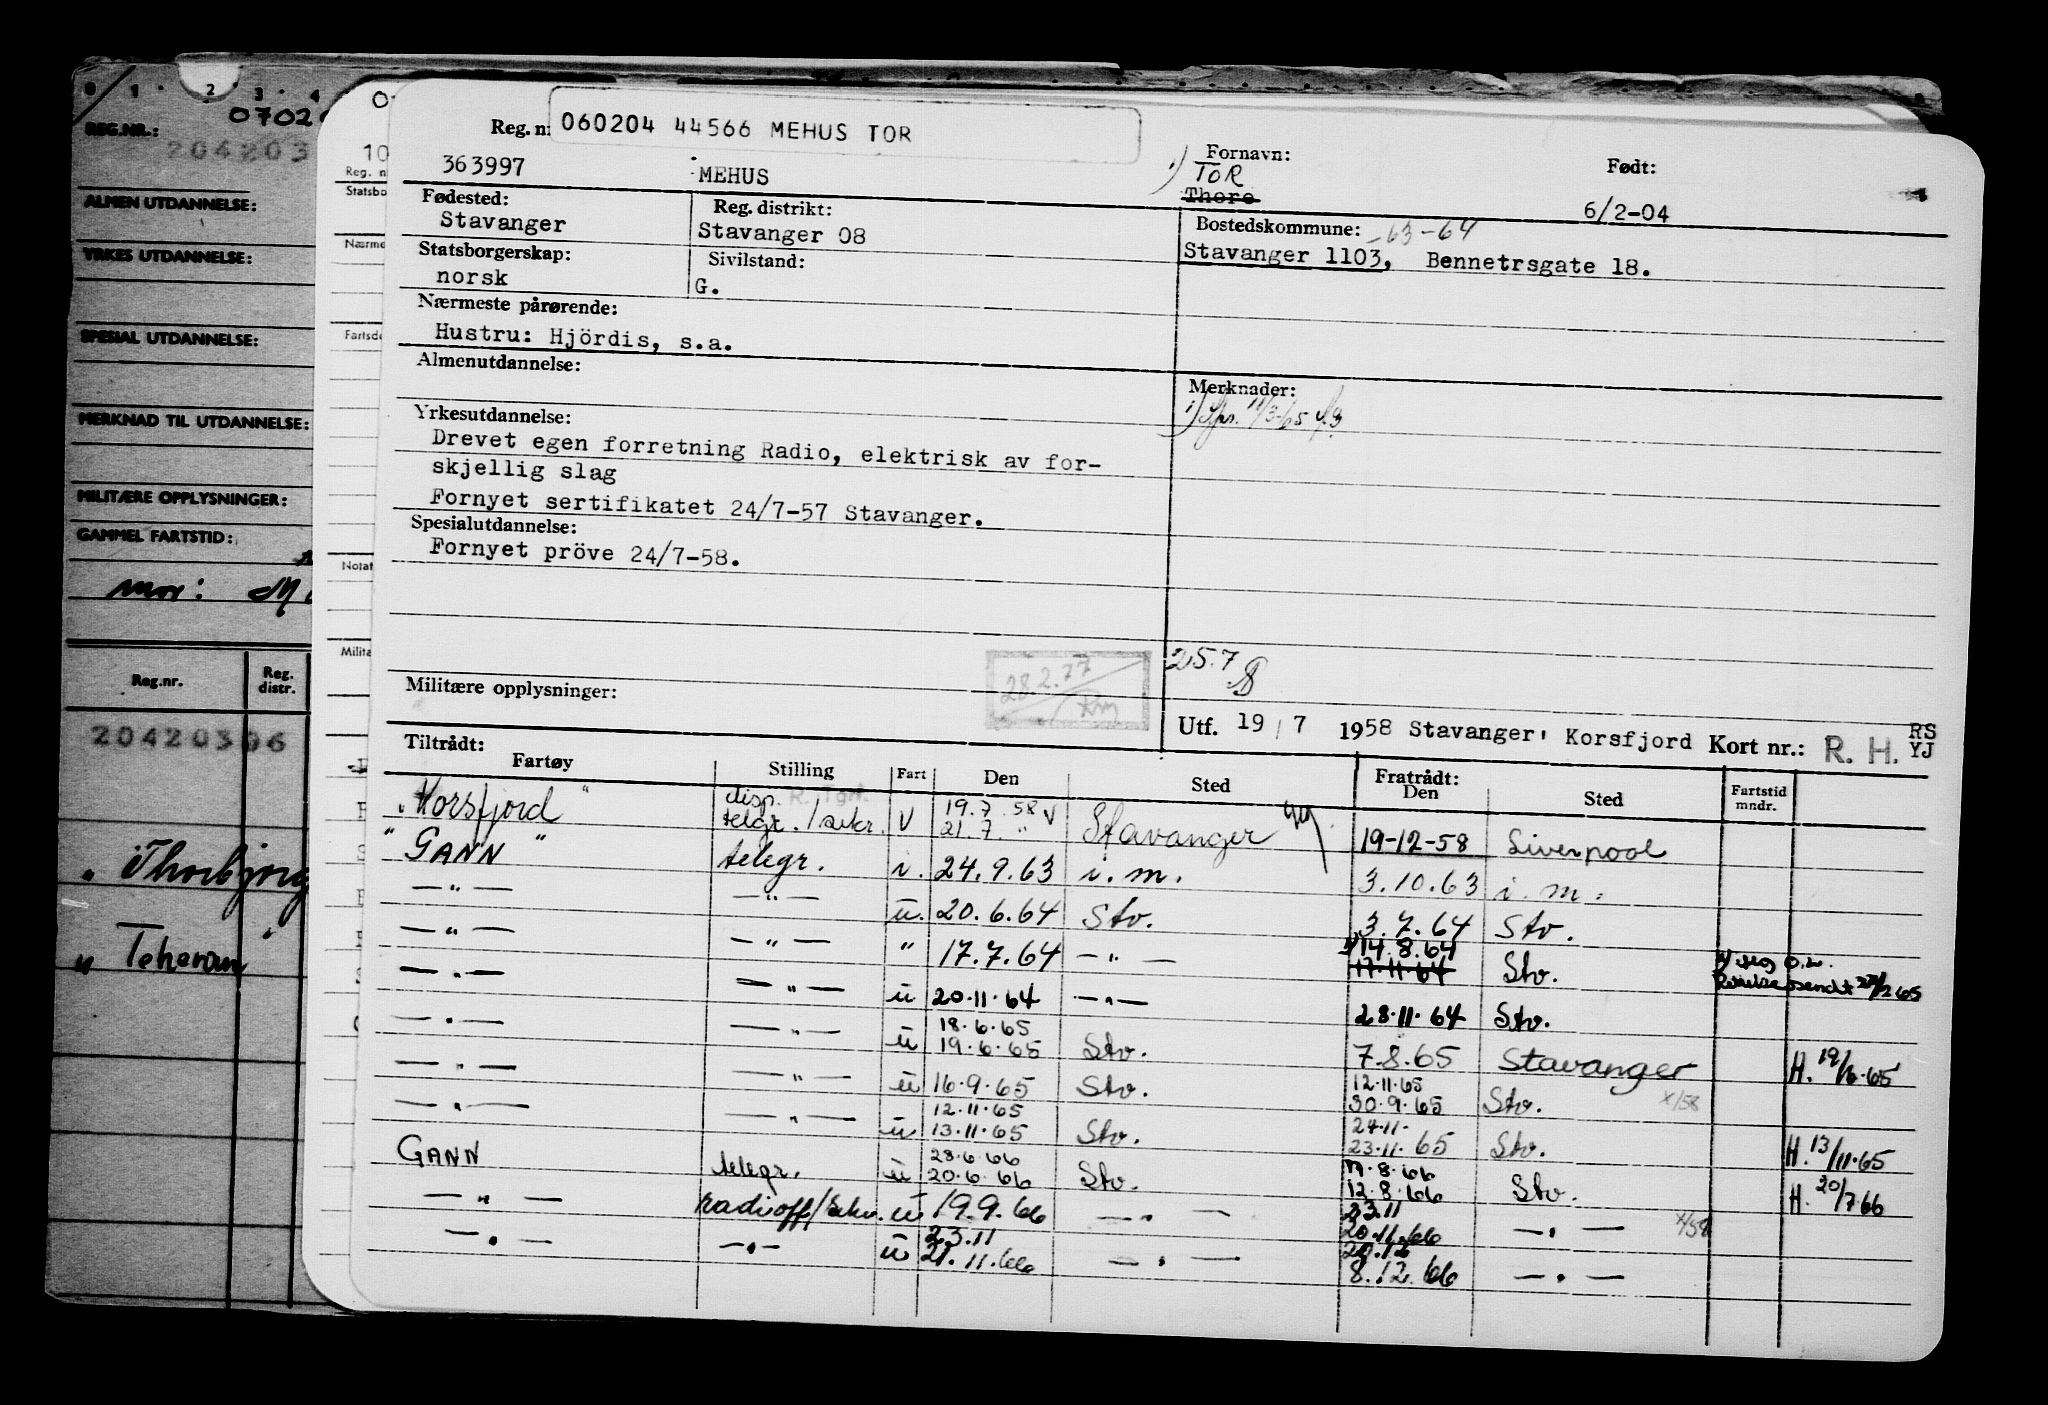 0 1 2 3 4
0702
REG.NR.:
204203
ALMEN UTDANNELSE:
YRKES UTDANNELSE:
SPESIAL UTDANNELSE:
MERKNAD TIL UTDANNELSE:
MILITÆRE OPPLYSNINGER:
GAMMEL FARTSTID:
mor: M
Reg.nr. Reg. distr.
20420306
„ Thorbjørg
„ Teheran "
10
Reg. n
Statsbo
Nærme
Fartsde
Notat
Milita
Reg. n
060204 44566 MEHUS TOR
363997 MEHUS
Fornavn:
1) TOR
Thore
Født:
6/2-04
Fødested:
Stavanger
Reg. distrikt:
Stavanger 08
Bostedskommune: -63-64
Stavanger 1103, Bennetrsgate 18.
Statsborgerskap:
norsk
Sivilstand:
G.
Nærmeste pårørende:
Hustru: Hjördis, s.a.
Almenutdannelse:
Merknader:
1) 11/3-65
Yrkesutdannelse:
Drevet egen forretning Radio, elektrisk av for-
skjellig slag
Fornyet sertifikatet 24/7-57 Stavanger.
Spesialutdannelse:
Fornyet pröve 24/7-58.
25.7
28.2.77
Militære opplysninger:
Utf. 19 / 7 1958 Stavanger, Korsfjord Kort nr.: R. H. RS YJ
Tiltrådt: Fratrådt:
Fartøy Stilling Fart Den Sted Den Sted Fartstid mndr.
„Korsfjord" disp. R.Tgrf. telgr./sekr. V 19.7.58 V 21.7. " Stavanger 19-12-58 Liverpool
"GANN" telegr. i. 24.9.63 i.m. 3.10.63 i.m.
— " — — " — u. 20.6.64 Stv. 3.7.64 Stv.
— " — — " — " 17.7.64 — " — 1) 14.8.64 17.11.64 Stv. sendt 65
— " — — " — u 20.11.64 — " — 28.11.64 Stv.
— " — — " — u 18.6.65 19.6.65 Stv. 7.8.65 Stavanger H. 19/6.65
— " — — " — u 16.9.65 Stv. 12.11.65 30.9.65 Stv. x/58
— " — — " — u 12.11.65 13.11.65 Stv. 24.11. 23.11.65 Stv. H. 13/11.65
GANN telegr. u 28.6.66 20.6.66 Stv. 12.8.66 Stv. H. 20/7 66
— " — radiooff/Sekr. u 19.9.66 — " — 23.11 20.11.66 — " — x/58
— " — — " — u 23.11 21.11.66 — " — 20.12 8.12.66 — " —